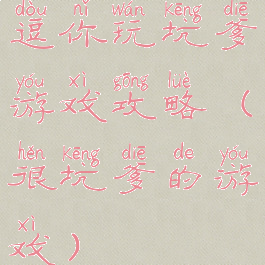 dòu nǐ wán kēng diē
逗你玩坑爹
yóu xì gōng lüè
游戏攻略（
hěn kēng diē de yóu
很坑爹的游
xì
戏）